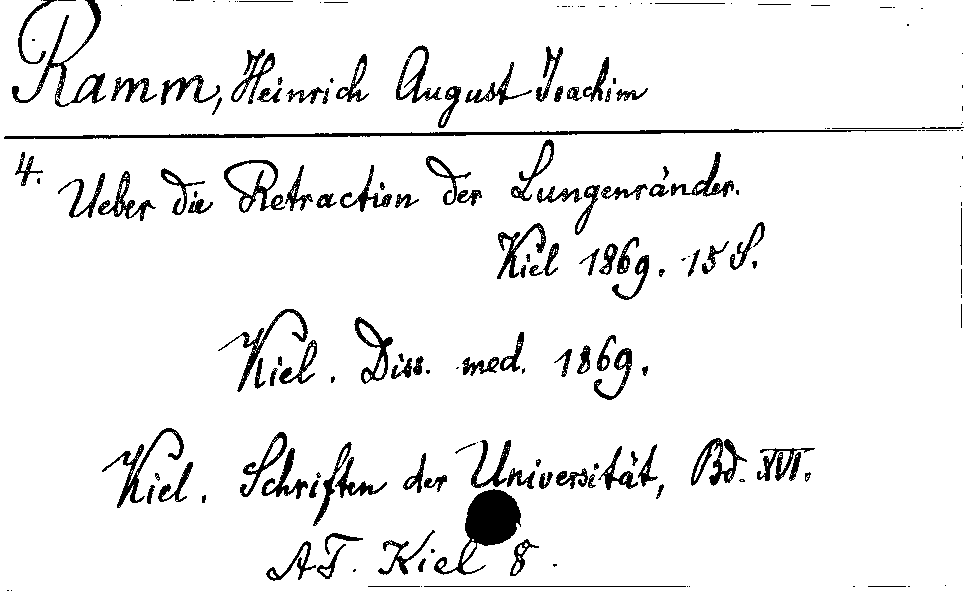 Ramm, Heinrich August Joachim
4. Ueber die Retraction der Lungenränder.
Kiel 1869. 15 S.
Kiel. Diss. med. 1869.
Kiel. Schriften der Universität, Bd. XVI.
AT. Kiel 8.